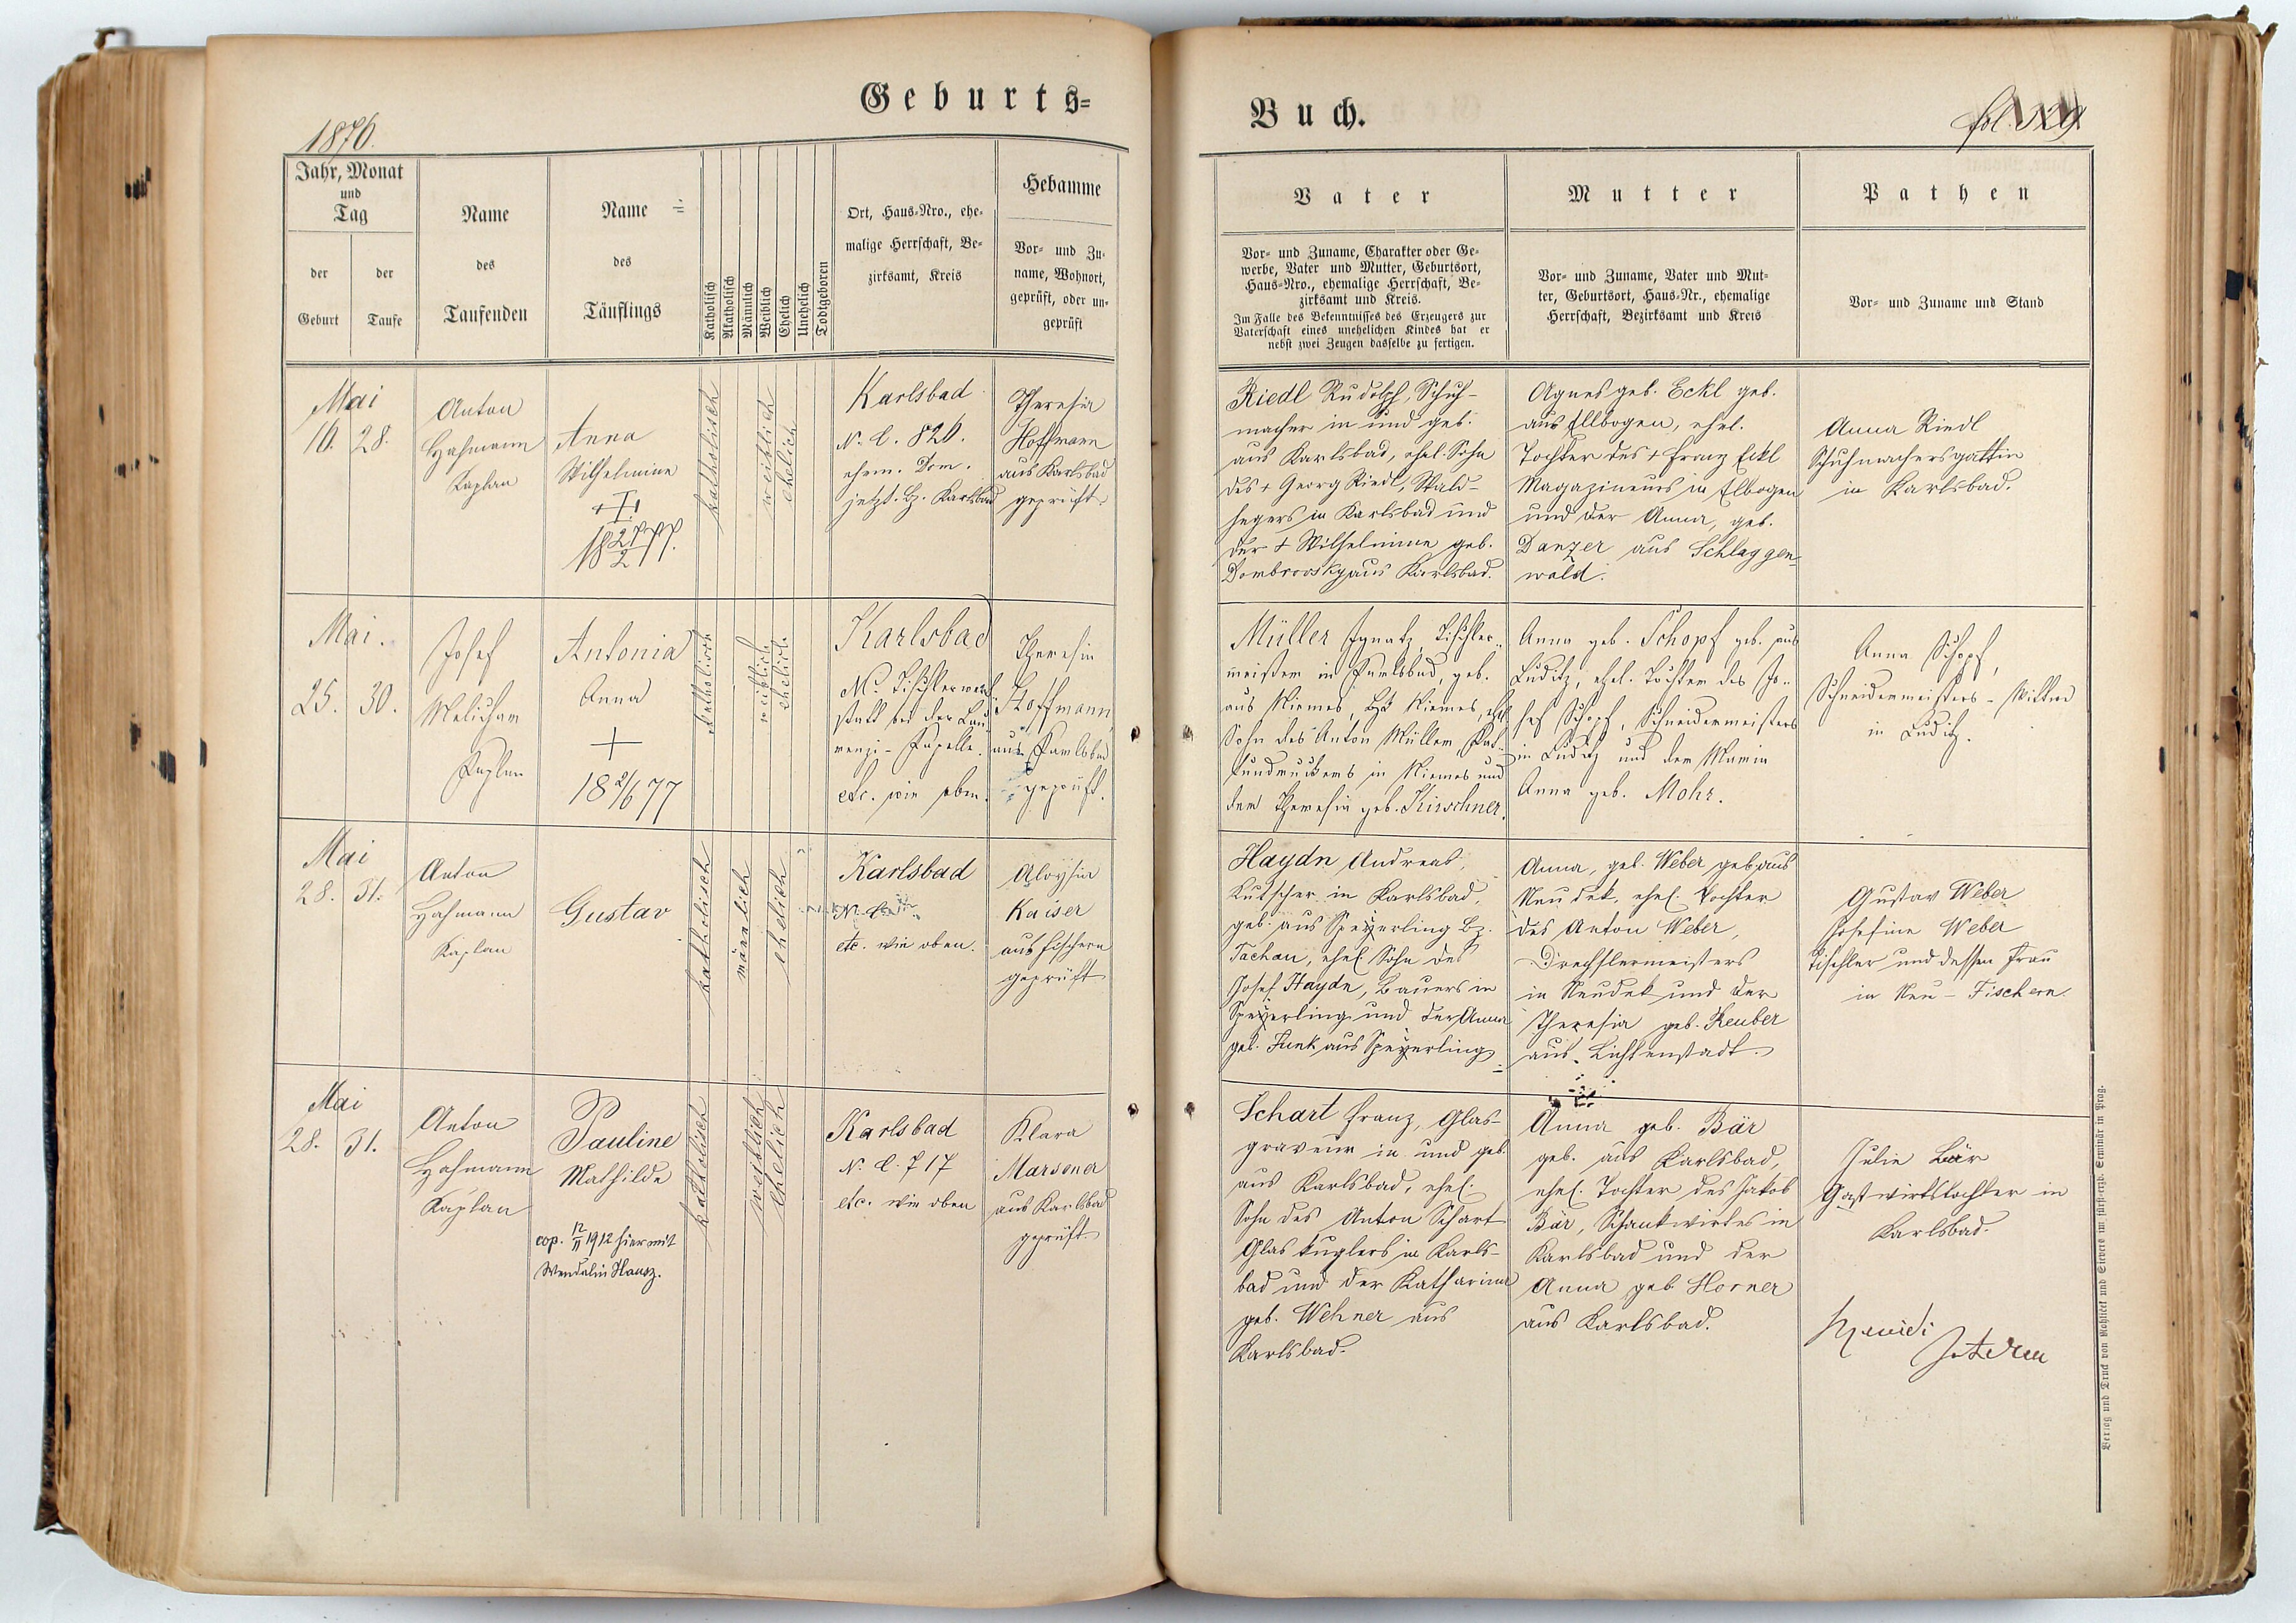 Geburts=
1876.
Jahr, Monat
und
Tag
der
Geburt
der
Taufe
Name
des
Taufenden
Name
des
Täuflings
Katholisch
Akatholisch
Männlich
Weiblich
Ehelich
Unehelich
Todtgeboren
Ort, Haus-Nro., ehe-
malige Herrschaft, Be-
zirksamt, Kreis
Hebamme
Vor- und Zu-
name, Wohnort,
geprüft, oder un-
geprüft
Mai
16. 28.
Anton
Hahmann
Kaplan
Anna
Wilhelmine
katholisch
weiblich
ehelich
Karlsbad
N. C. 826.
ehem. Dom.
jetzt. Bz. Karlsbad
Theresia
Hoffmann
aus Karlsbad
geprüft.
Mai.
25. 30.
Josef
Melichar
Kaplan
Antonia
Anna
18 2/6 77
katholisch
weiblich
ehelich.
Karlsbad
N. Tischlerwerk-
statt bei der Lau-
renzi-Kapelle.
etc. wie oben.
Theresia
Hoffmann,
aus Karlsbad
geprüft.
Mai
28. 31.
Anton
Hahmann
Kaplan
Gustav
katholisch
männlich
ehelich
Karlsbad
N. C.
etc. wie oben.
Aloysia
Kaiser
aus Fischern
geprüft
Mai
28. 31.
Anton
Hahmann
Kaplan
Pauline
Mathilde
cop. 12/II 1912 hier mit
Wendelin Hausz.
katholisch
weiblich
ehelich
Karlsbad
N. C. 717
etc. wie oben
Klara
Marsoner
aus Karlsbad
geprüft.
Buch.
fol. 329.
Vater
Vor- und Zuname, Charakter oder Ge-
werbe, Vater und Mutter, Geburtsort,
Haus-Nro., ehemalige Herrschaft, Be-
zirksamt und Kreis.
Im Falle des Bekenntnisses des Erzeugers zur
Vaterschaft eines unehelichen Kindes hat er
nebst zwei Zeugen dasselbe zu fertigen.
Mutter
Vor- und Zuname, Vater und Mut-
ter, Geburtsort, Haus-Nr., ehemalige
Herrschaft, Bezirksamt und Kreis
Pathen
Vor- und Zuname und Stand
Riedl Rudolph, Schuh-
macher in und geb.
aus Karlsbad, ehel. Sohn
des + Georg Riedl, Wald-
hegers in Karlsbad und
der + Wilhelmine geb.
Dombrowsky aus Karlsbad.
Agnes geb. Eckl geb.
aus Ellbogen, ehel.
Tochter des + Franz Eckl
Magazineurs in Elbogen
und der Anna, geb.
Danzer aus Schlaggen-
wald.
Anna Riedl
Schuhmachersgattin
in Karlsbad.
Müller Ignatz, Tischler-
meister in Karlsbad, geb.
aus Niemes, Bzk Niemes, ehel.
Sohn des Anton Müller, Kat-
tundruckers in Niemes und
der Theresia geb. Kirschner.
Anna geb. Schopf geb. aus
Luditz, ehel. Tochter des Jo-
sef Schopf, Schneidermeisters
in Luditz und der Maria
Anna geb. Mohr.
Anna Schopf,
Schneidermeisters-Wittwe
in Luditz.
Haydn Andreas,
Kutscher in Karlsbad,
geb. aus Speyerling Bz.
Tachau, ehel. Sohn des
Josef Haydn, Bauers in
Speyerling und der Anna
geb. Funk aus Speyerling
Anna, geb. Weber geb. aus
Neudek, ehel. Tochter
des Anton Weber,
Drechslermeisters
in Neudek und der
Theresia geb. Reuber
aus Lichtenstadt.
Gustav Weber
Josefine Weber
Tischler und dessen Frau
in Neu-Fischern.
Schart Franz, Glas-
graveur in und geb.
aus Karlsbad, ehel.
Sohn des Anton Schart
Glaskuglers in Karls-
bad und der Katharina
geb. Wehner aus
Karlsbad.
Anna geb. Bär
geb. aus Karlsbad,
ehel. Tochter des Jakob
Bär, Schankwirtes in
Karlsbad und der
Anna geb. Horner
aus Karlsbad.
Julie Bär
Gastwirtstochter in
Karlsbad.
Verlag und Druck von Rohlicek und Sievers im fürst-erzb. Seminär in Prag.